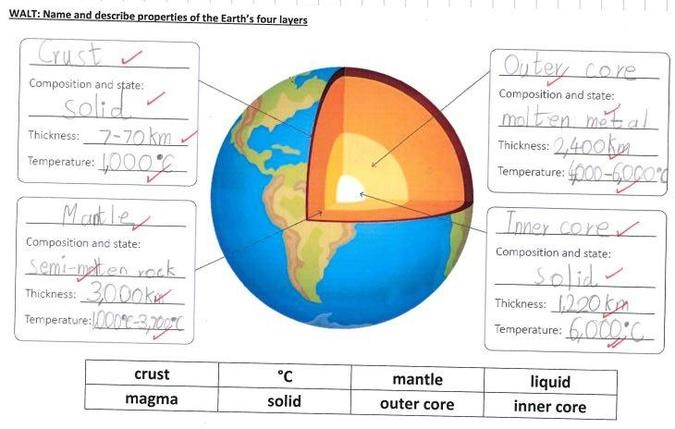 WALT: Name and describe properties of the Earth's four layers
Crust
Composition and state:
Solid
Thickness: 7-70 km
Temperature: 1,000°C
Mantle
Composition and state:
semi-molten rock
Thickness: 3,000km
Temperature: 1000°C-3,700°C
Outer core
Composition and state:
molten metal
Thickness: 2,400km
Temperature: 4000-6,000°C
Inner core
Composition and state:
solid
Thickness: 1,220 km
Temperature: 6,000°C
crust °C mantle liquid
magma solid outer core inner core